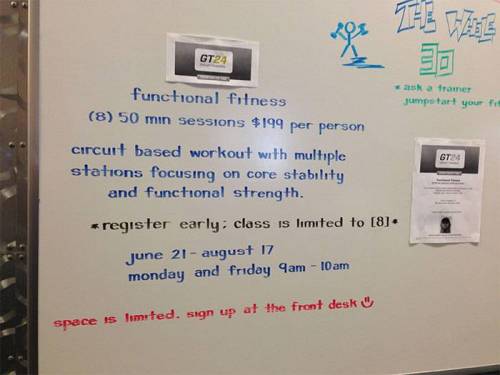 THE WHOLE
30
* ask a trainer
jumpstart your fit
GT24
functional fitness
(8) 50 min sessions $199 per person
circuit based workout with multiple
stations focusing on core stability
and functional strength.
*register early; class is limited to [8]*
june 21 - august 17
monday and friday 9am - 10am
space is limited. sign up at the front desk
GT24